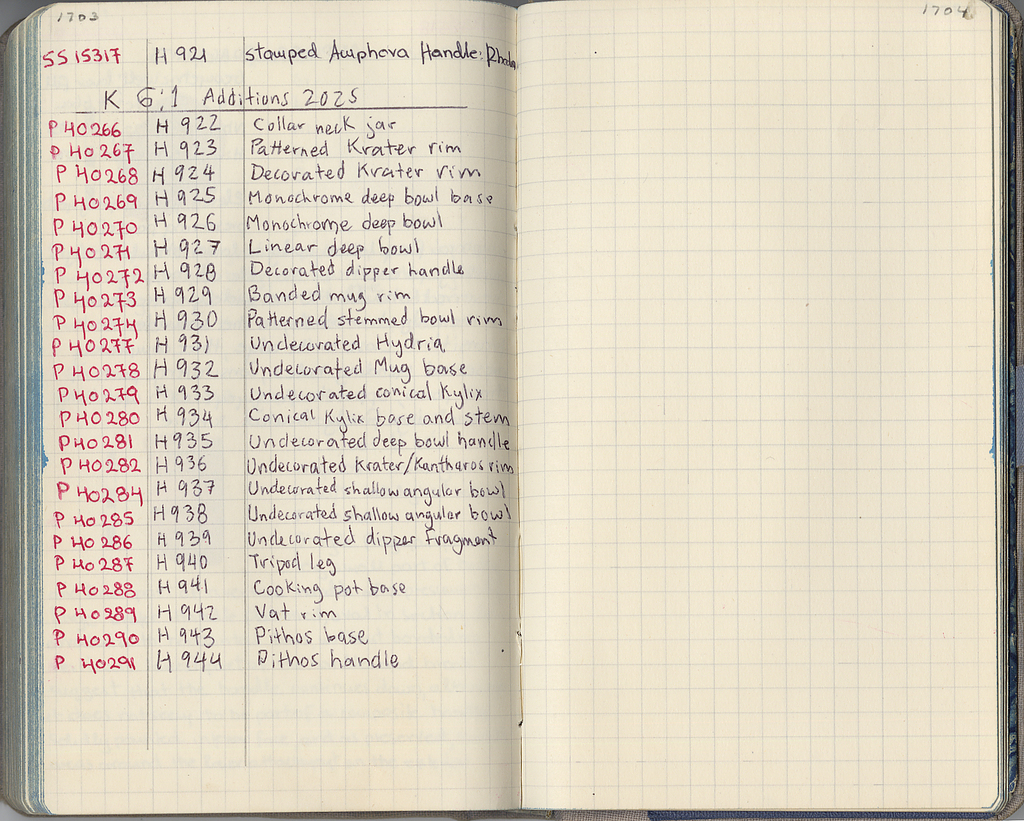 1703
SS 15317 H 921 Stamped Amphora Handle: Rhodian
K 6:1 Additions 2025
P 40266 H 922 Collar neck jar
P 40267 H 923 Patterned Krater rim
P 40268 H 924 Decorated Krater rim
P 40269 H 925 Monochrome deep bowl base
P 40270 H 926 Monochrome deep bowl
P 40271 H 927 Linear deep bowl
P 40272 H 928 Decorated dipper handle
P 40273 H 929 Banded mug rim
P 40274 H 930 Patterned stemmed bowl rim
P 40277 H 931 Undecorated Hydria
P 40278 H 932 Undecorated Mug base
P 40279 H 933 Undecorated conical Kylix
P 40280 H 934 Conical Kylix base and stem
P 40281 H 935 Undecorated deep bowl handle
P 40282 H 936 Undecorated Krater/Kantharos rim
P 40284 H 937 Undecorated shallow angular bowl
P 40285 H 938 Undecorated shallow angular bowl
P 40286 H 939 Undecorated dipper fragment
P 40287 H 940 Tripod leg
P 40288 H 941 Cooking pot base
P 40289 H 942 Vat rim
P 40290 H 943 Pithos base
P 40291 H 944 Pithos handle
1704